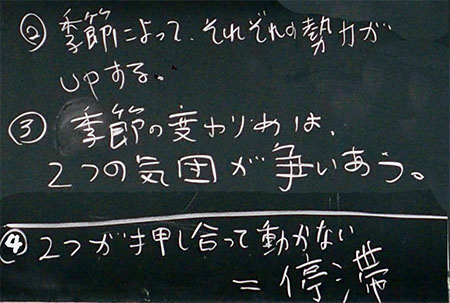 ② 季節によって、それぞれの勢力が
upする。
③ 季節の変わりめは、
2つの気団が争いあう。
④ 2つが押し合って動かない
= 停滞